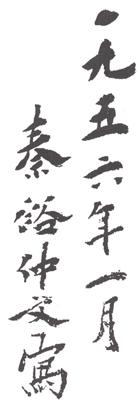 一九五六年一月
秦裕仲文寫